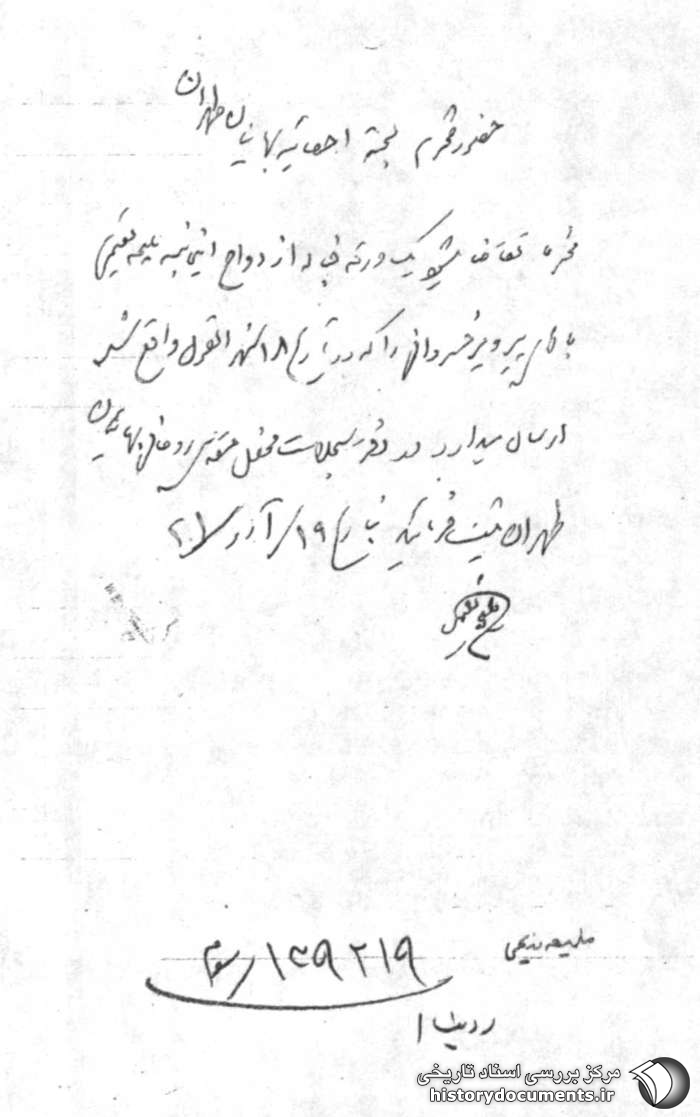 حضور محترم لجنهٔ احصائیه بهائیان طهران
محترماً تقاضا میشود یک ورقه قباله ازدواج اینجانبه ملیحه نعیمی
با آقای پرویز خسروانی را که در تاریخ ۱۸ شهرالقول واقع شده
ارسال میدارد در دفتر سجلات محفل مقدس روحانی بهائیان
طهران ثبت فرمائید بتاریخ ۱۹/ آذر/
ملیحه نعیمی
۲۱۹
ردیف ۱
مرکز بررسی اسناد تاریخی
historydocuments.ir